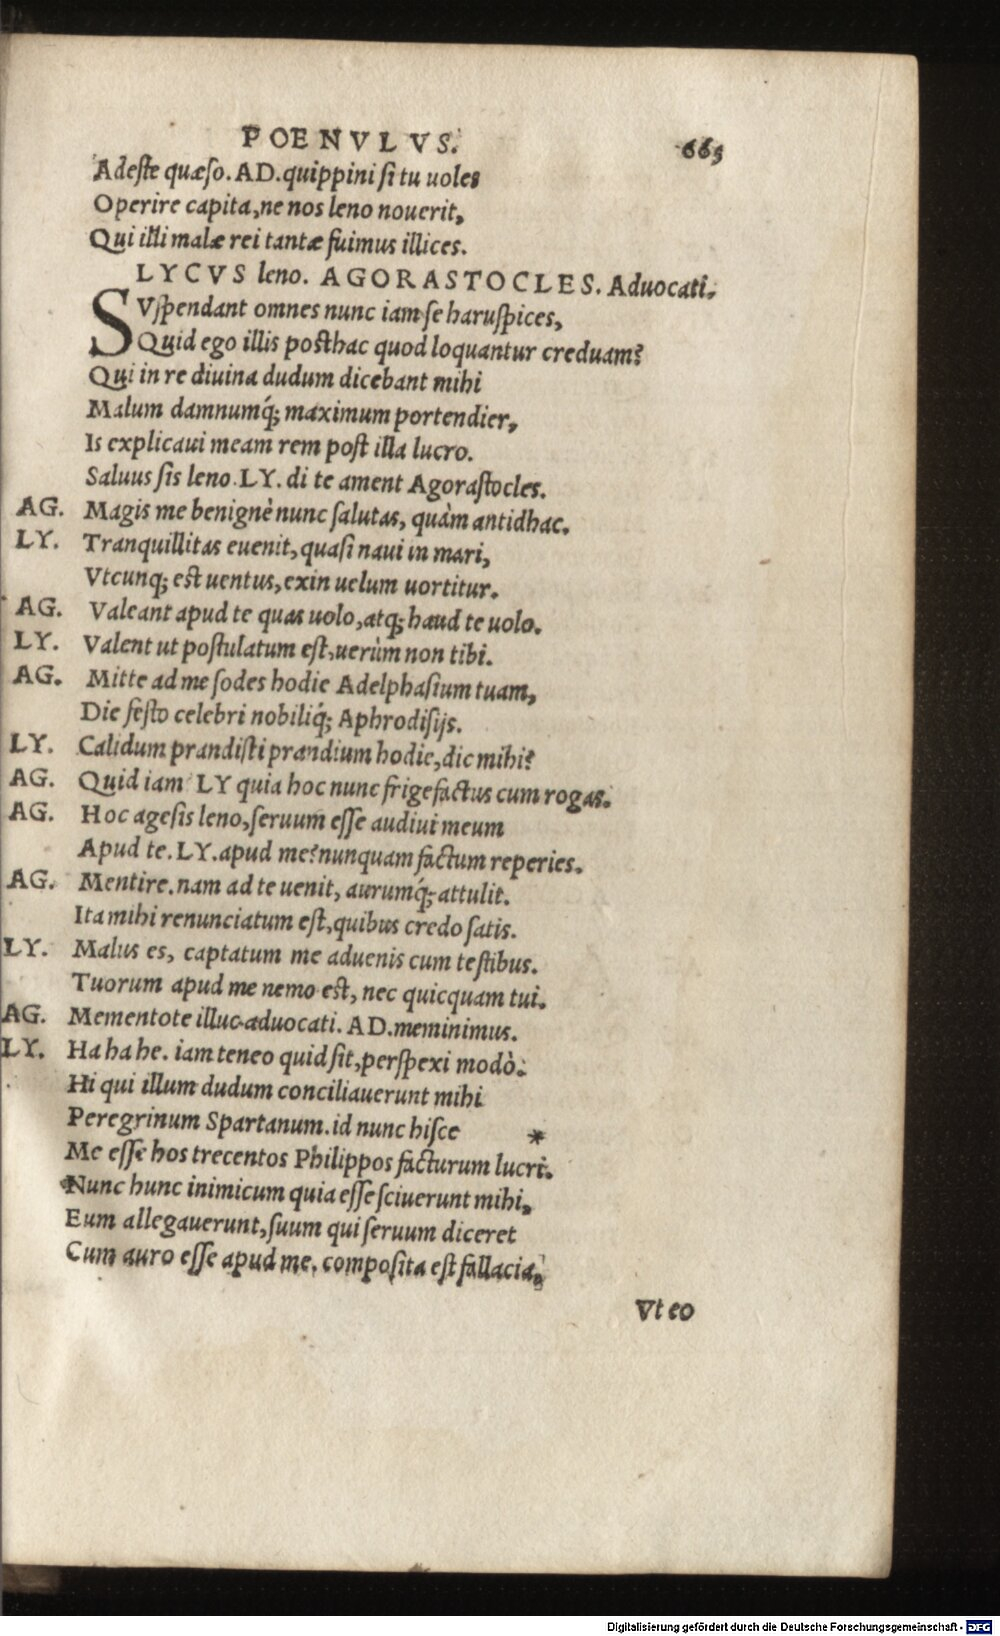 POENVLVS. 665
Adeſte quæſo. AD. quippini ſi tu uoles
Operire capita, ne nos leno nouerit,
Qui illi malæ rei tantæ fuimus illices.
LYCVS leno. AGORASTOCLES. Aduocati.
SVſpendant omnes nunc iam ſe haruſpices,
Quid ego illis poſthac quod loquantur creduam?
Qui in re diuina dudum dicebant mihi
Malum damnumq́; maximum portendier,
Is explicaui meam rem poſt illa lucro.
Saluus ſis leno. LY. di te ament Agoraſtocles.
AG. Magis me benignè nunc ſalutas, quàm antidhac.
LY. Tranquillitas euenit, quaſi naui in mari,
Vtcunq; eſt uentus, exin uelum uortitur.
AG. Valeant apud te quas uolo, atq; haud te uolo.
LY. Valent ut poſtulatum eſt, uerùm non tibi.
AG. Mitte ad me ſodes hodie Adelphaſium tuam,
Die feſto celebri nobiliq́; Aphrodiſijs.
LY. Calidum prandiſti prandium hodie, dic mihi?
AG. Quid iam LY quia hoc nunc frigefactus cum rogas.
AG. Hoc ageſis leno, ſeruum eſſe audiui meum
Apud te. LY. apud me? nunquam factum reperies.
AG. Mentire. nam ad te uenit, aurumq́; attulit.
Ita mihi renunciatum eſt, quibus credo ſatis.
LY. Malus es, captatum me aduenis cum teſtibus.
Tuorum apud me nemo eſt, nec quicquam tui.
AG. Mementote illuc aduocati. AD. meminimus.
LY. Ha ha he. iam teneo quid ſit, perſpexi modò.
Hi qui illum dudum conciliauerunt mihi
Peregrinum Spartanum. id nunc hiſce *
Me eſſe hos trecentos Philippos facturum lucri.
Nunc hunc inimicum quia eſſe ſciuerunt mihi,
Eum allegauerunt, ſuum qui ſeruum diceret
Cum auro eſſe apud me. compoſita eſt fallacia.
Vt eo
Digitalisierung gefördert durch die Deutsche Forschungsgemeinschaft - DFG